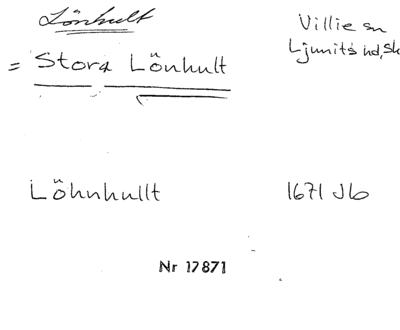 Lönhult
Villie sn
Ljunits hd, Sk
= Stora Lönhult
Löhnhullt 1671 Jb
Nr 17871